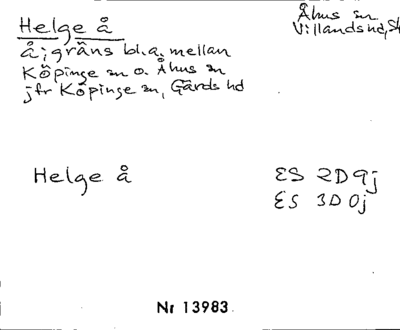 Helge å
Åhus sn
Villands hd, Sk
å; gräns bl.a. mellan
Köpinge sn o. Åhus sn
jfr Köpinge sn, Gärds hd
Helge å
ES 2D 9j
ES 3D 0j
Nr 13983